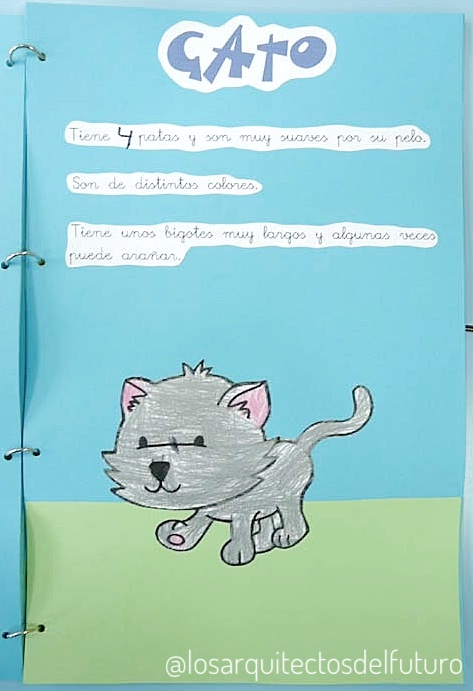 GATO
Tiene 4 patas y son muy suaves por su pelo.
Son de distintos colores.
Tiene unos bigotes muy largos y algunas veces
puede arañar.
@losarquitectosdelfuturo